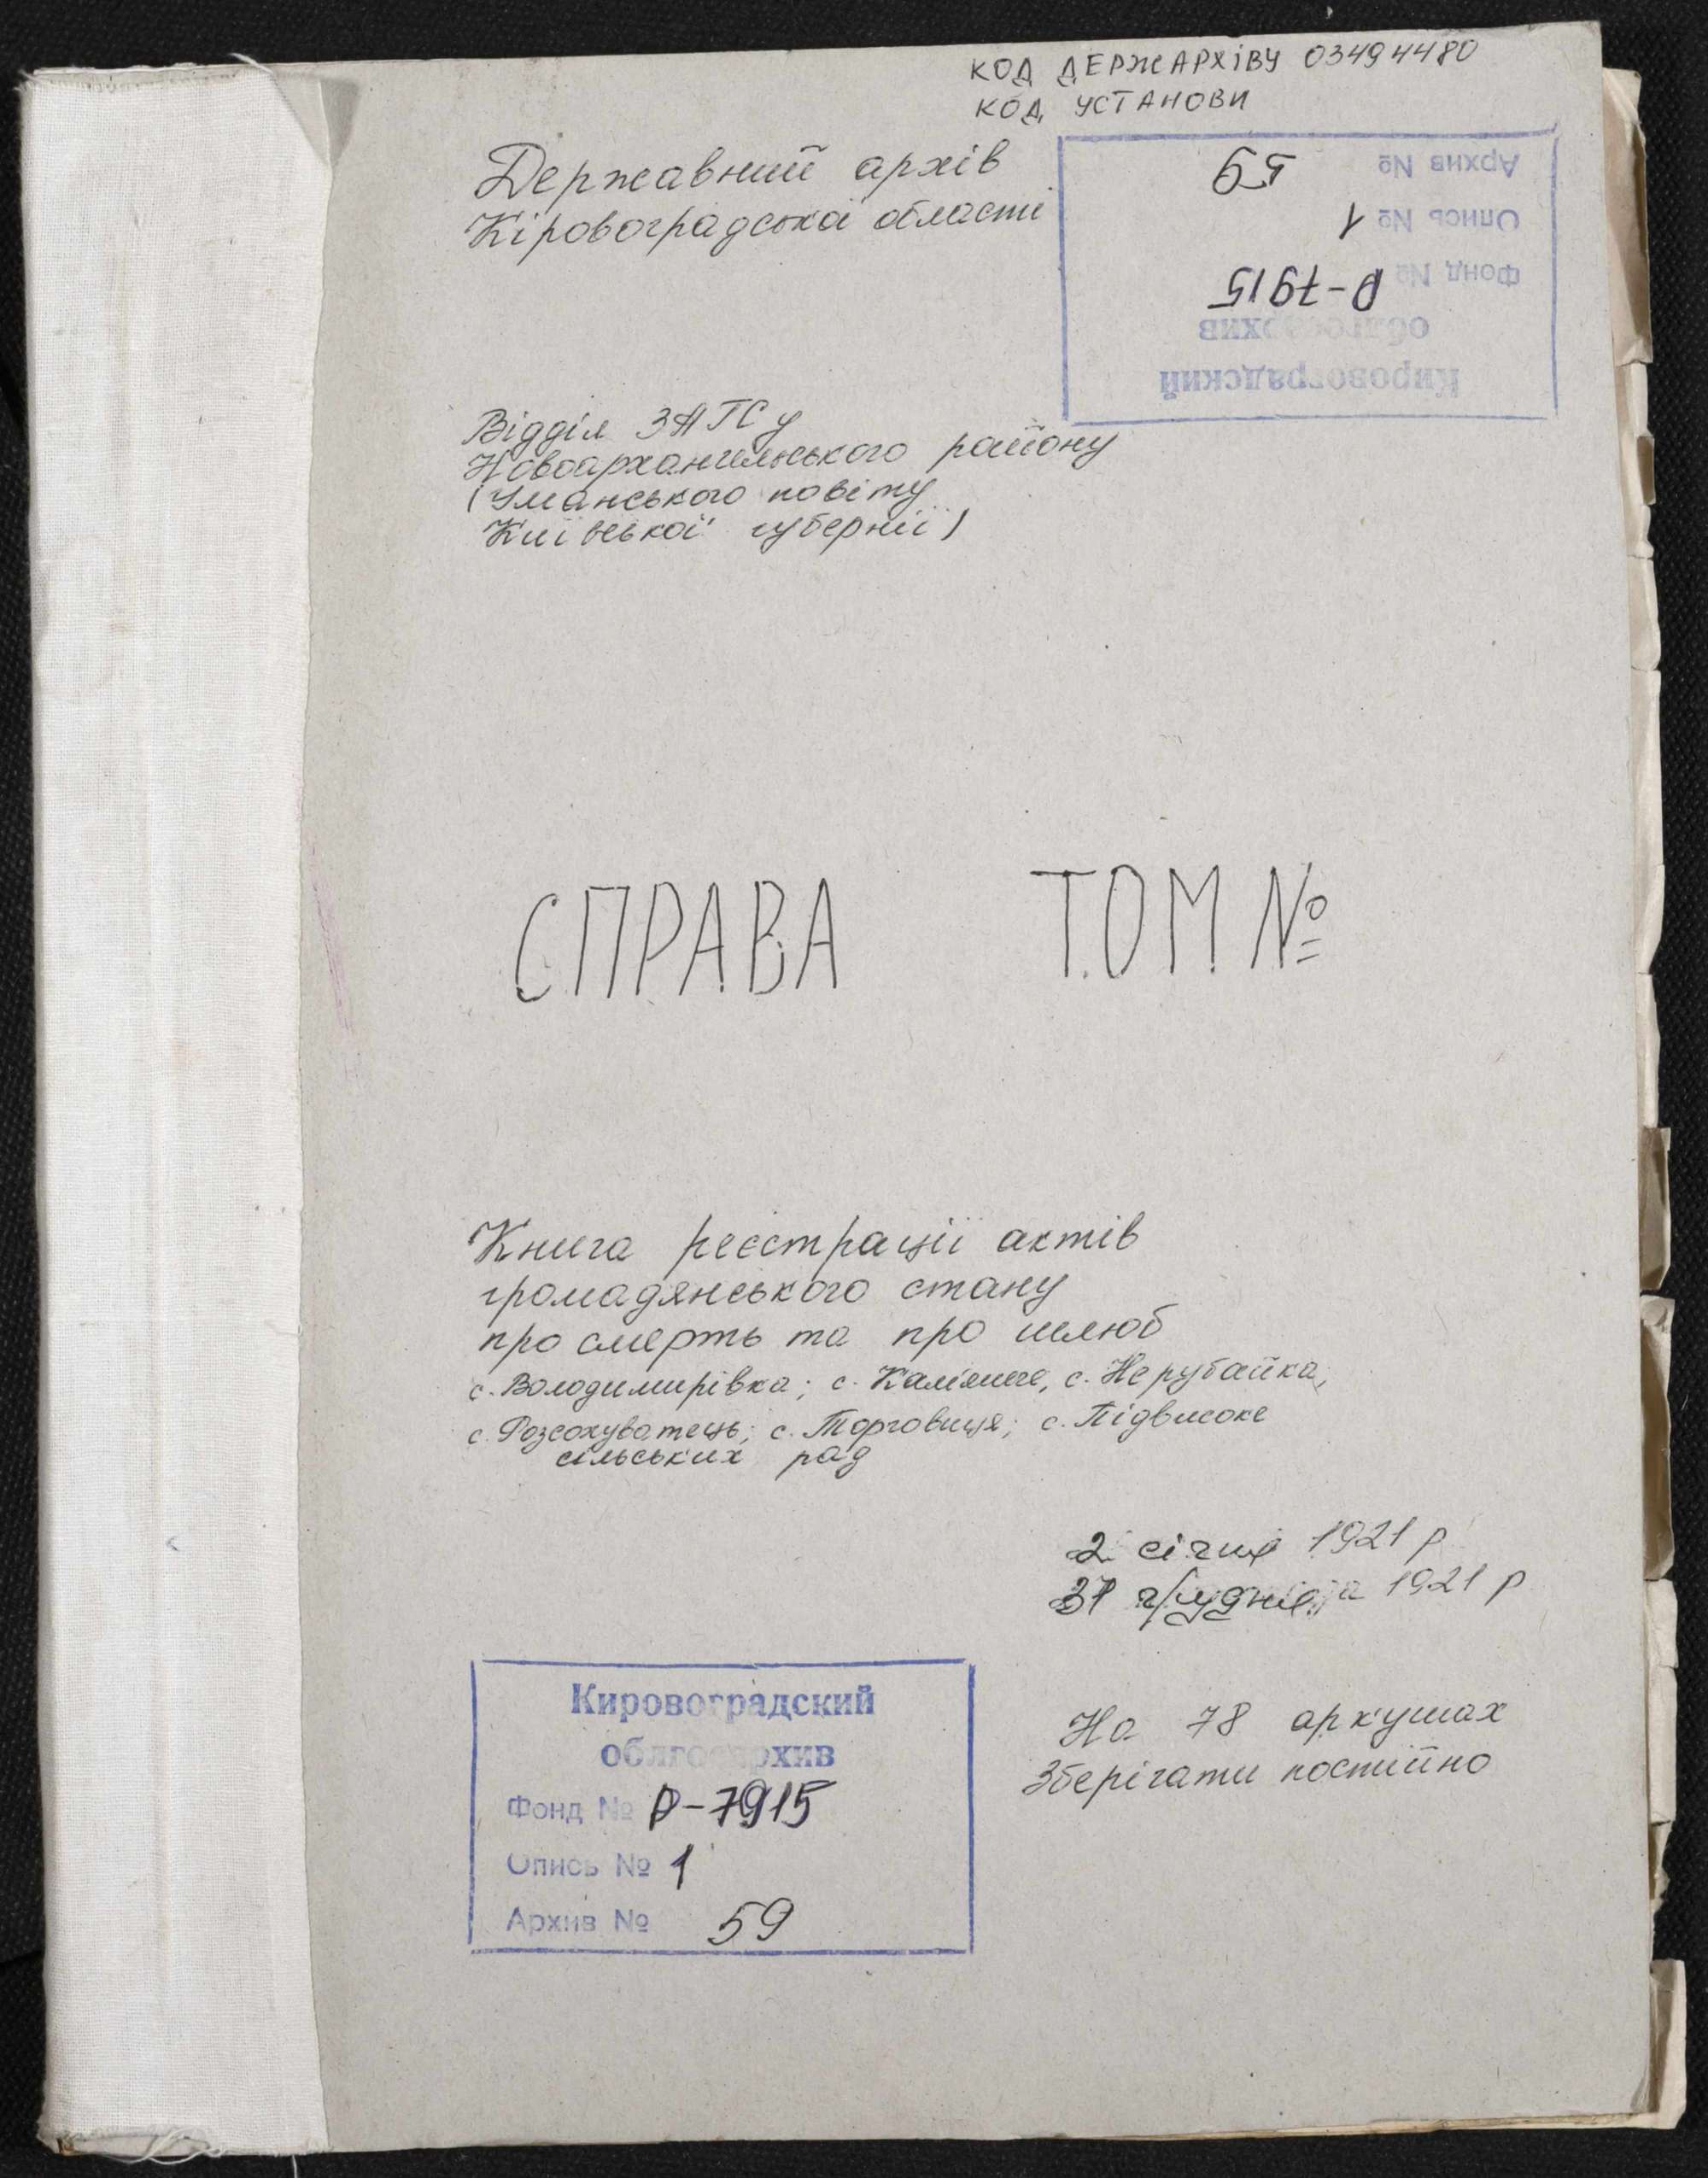 КОД ДЕРЖАРХІВУ 03494480
КОД УСТАНОВИ
Державний архів
Кіровоградської області
Кировоградский
облгосархив
Фонд № Р-7915
Опись № 1
Архив № 59
Відділ ЗАГСу
Новоархангельського району
(Уманського повіту
Київської губернії)
СПРАВА ТОМ №
Книга реєстрації актів
громадянського стану
про смерть та про шлюб
с. Володимирівка; с. Кам'яне, с. Нерубайка,
с. Розсохуватець; с. Торговиця; с. Підвисоке
сільських рад
2 січня 1921 р
31 грудня 1921 р
На 78 аркушах
Зберігати постійно
Кировоградский
облгосархив
Фонд № Р-7915
Опись № 1
Архив № 59